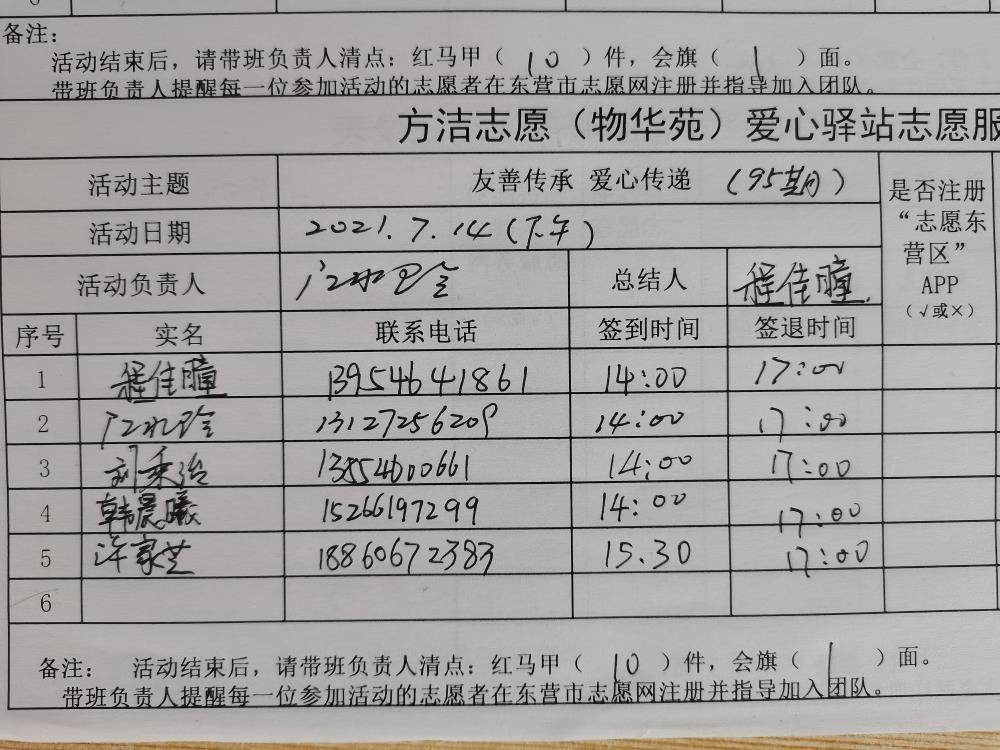 备注:
活动结束后，请带班负责人清点：红马甲（ 10 ）件，会旗（ 1 ）面。
带班负责人提醒每一位参加活动的志愿者在东营市志愿网注册并指导加入团队。
方洁志愿（物华苑）爱心驿站志愿服
活动主题 友善传承 爱心传递 （95期）
是否注册“志愿东营区”APP（√或×）
活动日期 2021.7.14（下午）
活动负责人 总结人 程佳瞳
序号 实名 联系电话 签到时间 签退时间
1 程佳瞳 13954641861 14:00 17:00
2 13127256209 14:00 17:00
3 刘秉治 13554600661 14:00 17:00
4 韩晨曦 15266197299 14:00 17:00
5 许家芝 18860672383 15.30 17:00
6
备注: 活动结束后，请带班负责人清点：红马甲（ 10 ）件，会旗（ 1 ）面。
带班负责人提醒每一位参加活动的志愿者在东营市志愿网注册并指导加入团队。